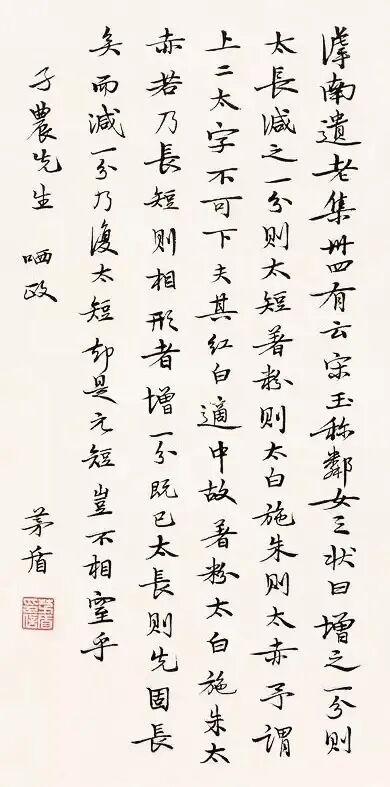 滹南遺老集卅四有云宋玉称鄰女之状曰增之一分則
太長減之一分則太短著粉則太白施朱則太赤予謂
上二太字不可下夫其红白適中故著粉太白施朱太
赤若乃長短則相形者增一分既已太長則先固長
矣而减一分乃復太短却是元短豈不相窒乎
子農先生 哂政
茅盾